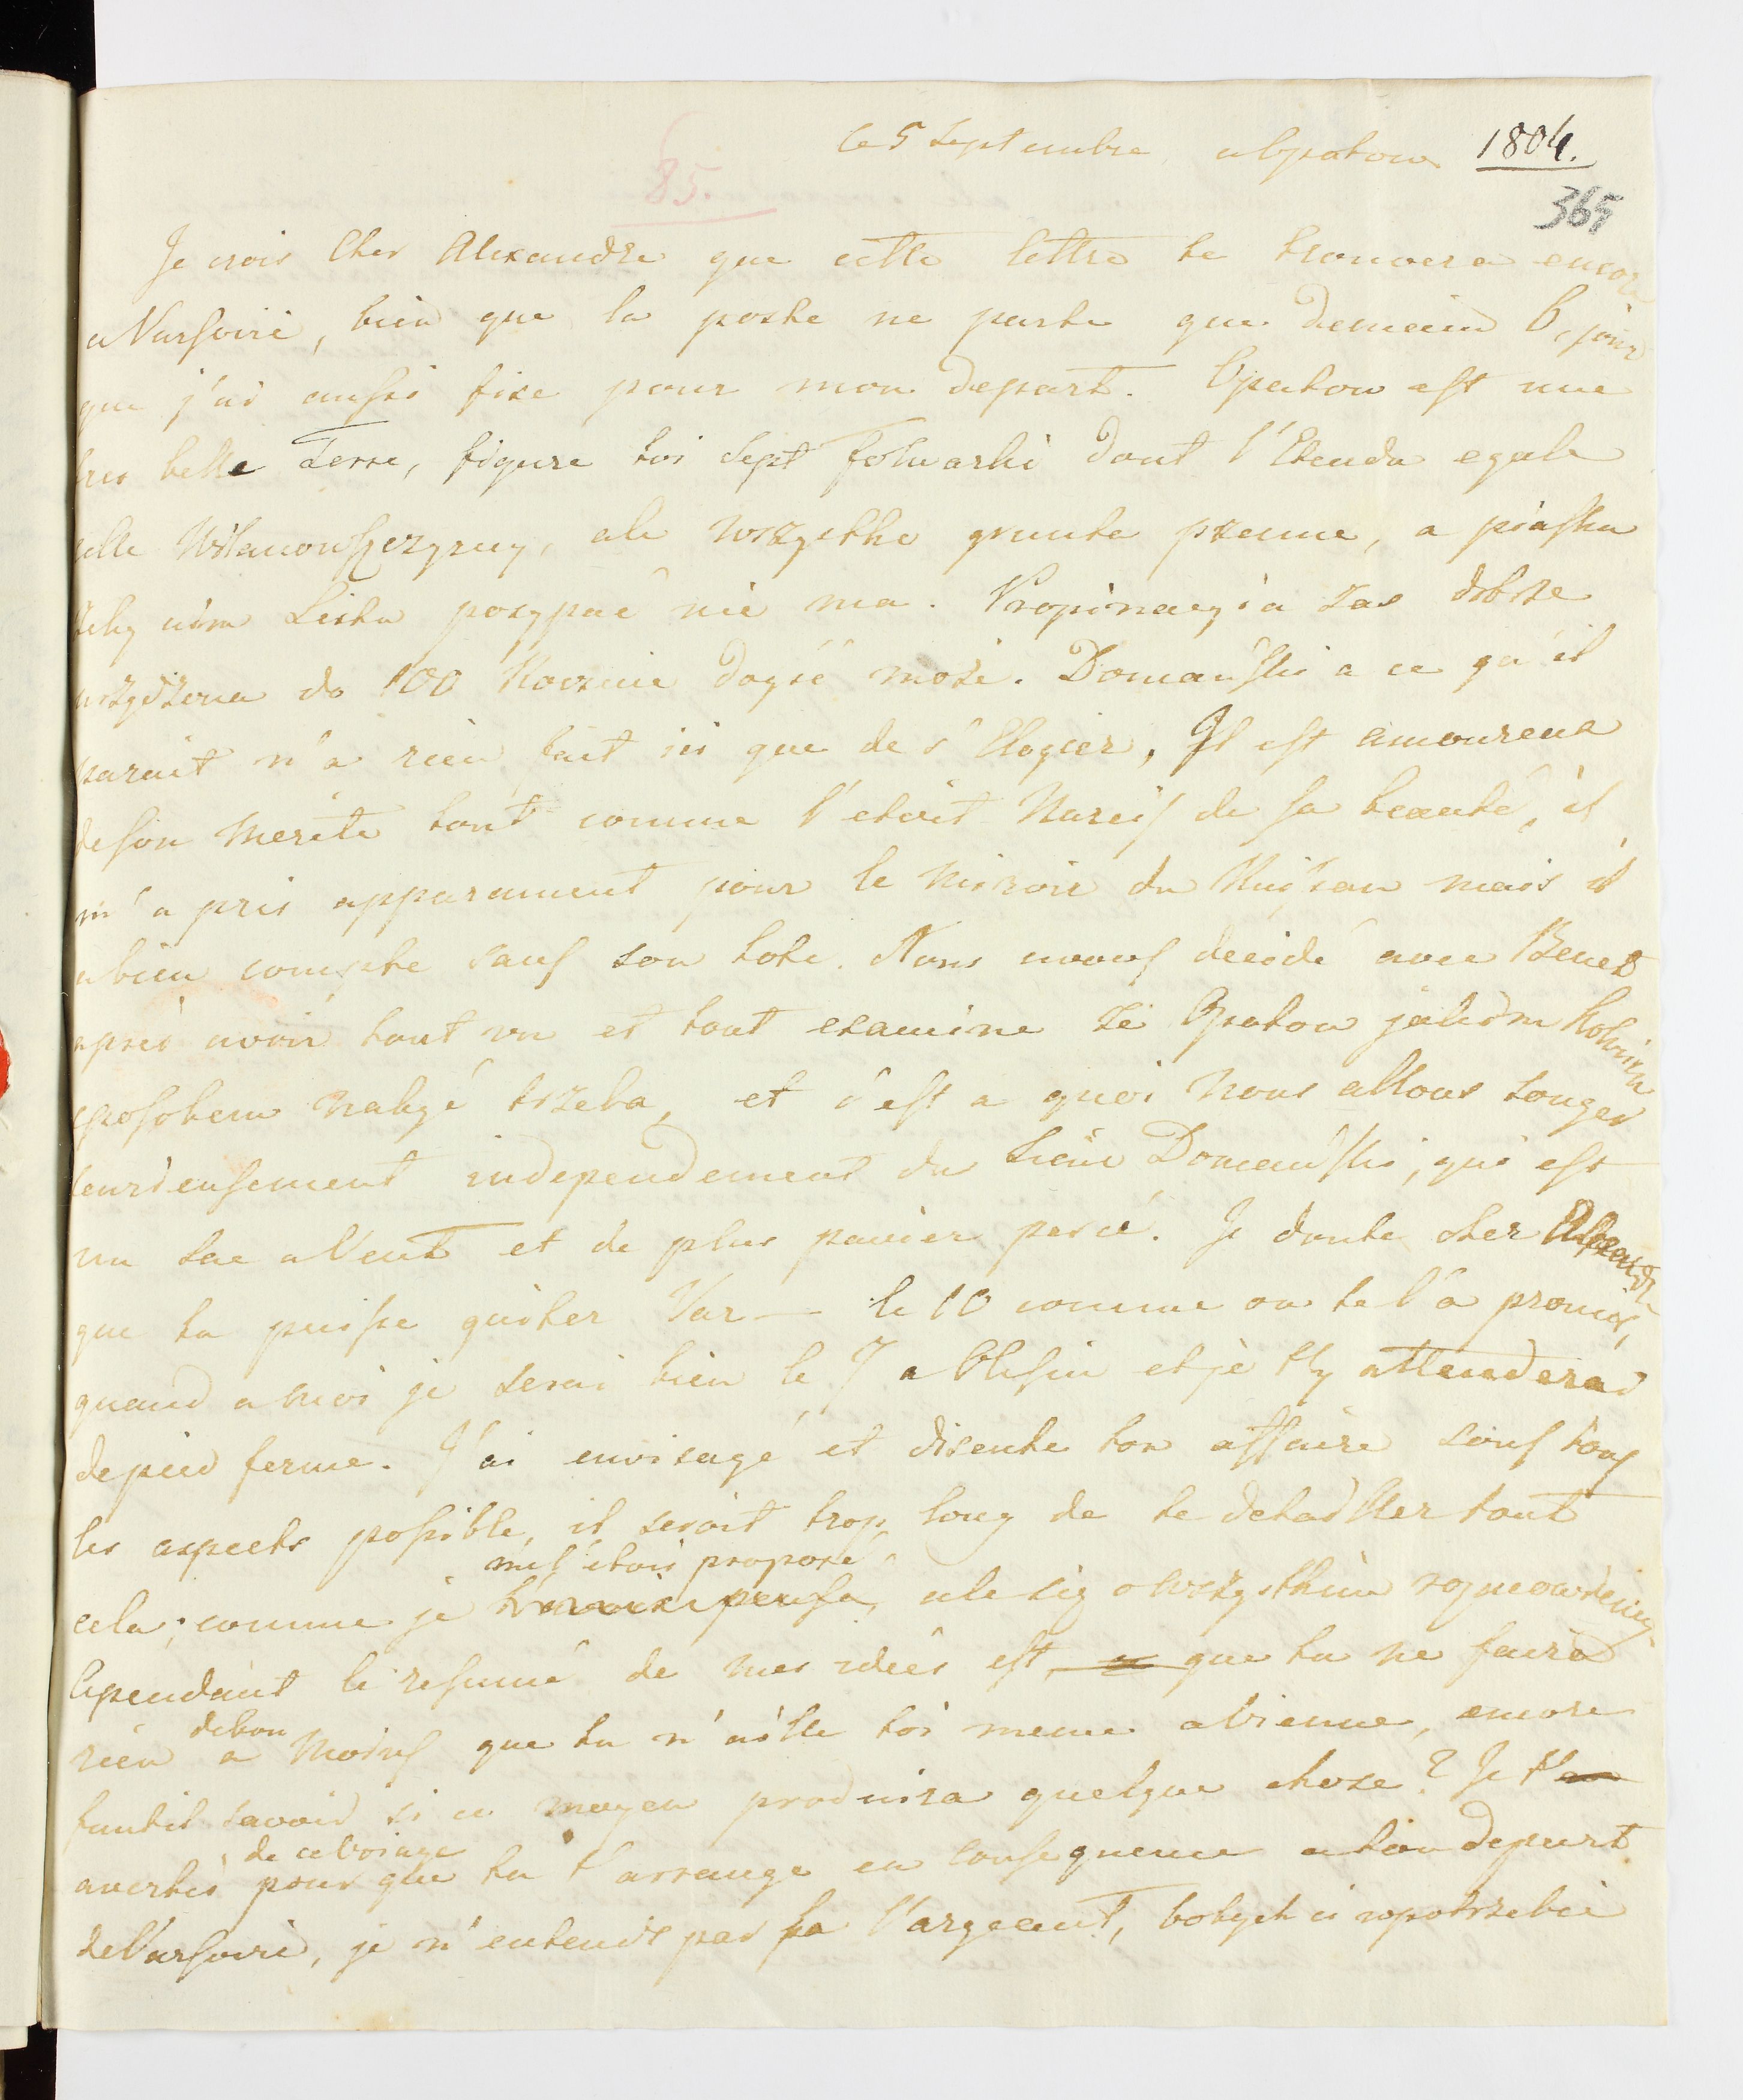 le 5 Septembre a Opatow 1804.
85.
365
Je crois Cher Alexandre que cette lettre te trouvera encore
a Varsovie, bien que la poste ne parte que demain 6, jour
que j'ai aussi fixe pour mon depart. Opatow est une
tres belle Terre, figure toi sept folwarki dont l'Etendu egale
celle Wilanowszczyzny, ale wszystko grunta pzenne, a piasku
żeby nim Lista posypać nie ma. Propinacyia zas dobrze
urządzona do 100 Rocznie dojść może. Domański a ce qu'il
parait n'a rien fait ici que de s'Elogier, Il est amoureux
de son Merite tout comme l'etoit Narcis de sa beauté, il
m'a pris apparament pour le Miroir du Ruisseau mais il
a bien compte sans son hote. Nous avons decidé avec Benes
après avoir tout vu et tout examine że Opatow jakiém kolwiek
sposobem nabyć trzeba, et c'est a quoi nous allons songer
serieusement independement du Sieur Domański, qui est
un Sac a Vent et de plus panier percé. Je doute cher Alexandre
que tu puisse quitter Var— le 10 comme on te l'a promis,
quand a moi je serai bien le 7 a Olesin et je t'y attenderai
de pied ferme. J'ai envisagé et discute ton affaire sous tous
les aspects possible, il seroit trop long de te detailler tout
me l'étois proposé
cela, comme je l'avois pensé, ale się o wszystkim rozmowiemy
Cependant le resumé de mes idées est, que tu ne faira
rien de bon a Moins que tu n'aille toi meme a Vienne, encore
fautil savoir si ce moyen produira quelque chose? Je t'en
de ce Voiage
avertis pour que tu t'arrange en consequence a ton depart
de Varsovie, je n'entends pas par l'argeant, bo tych ci w potrzebie